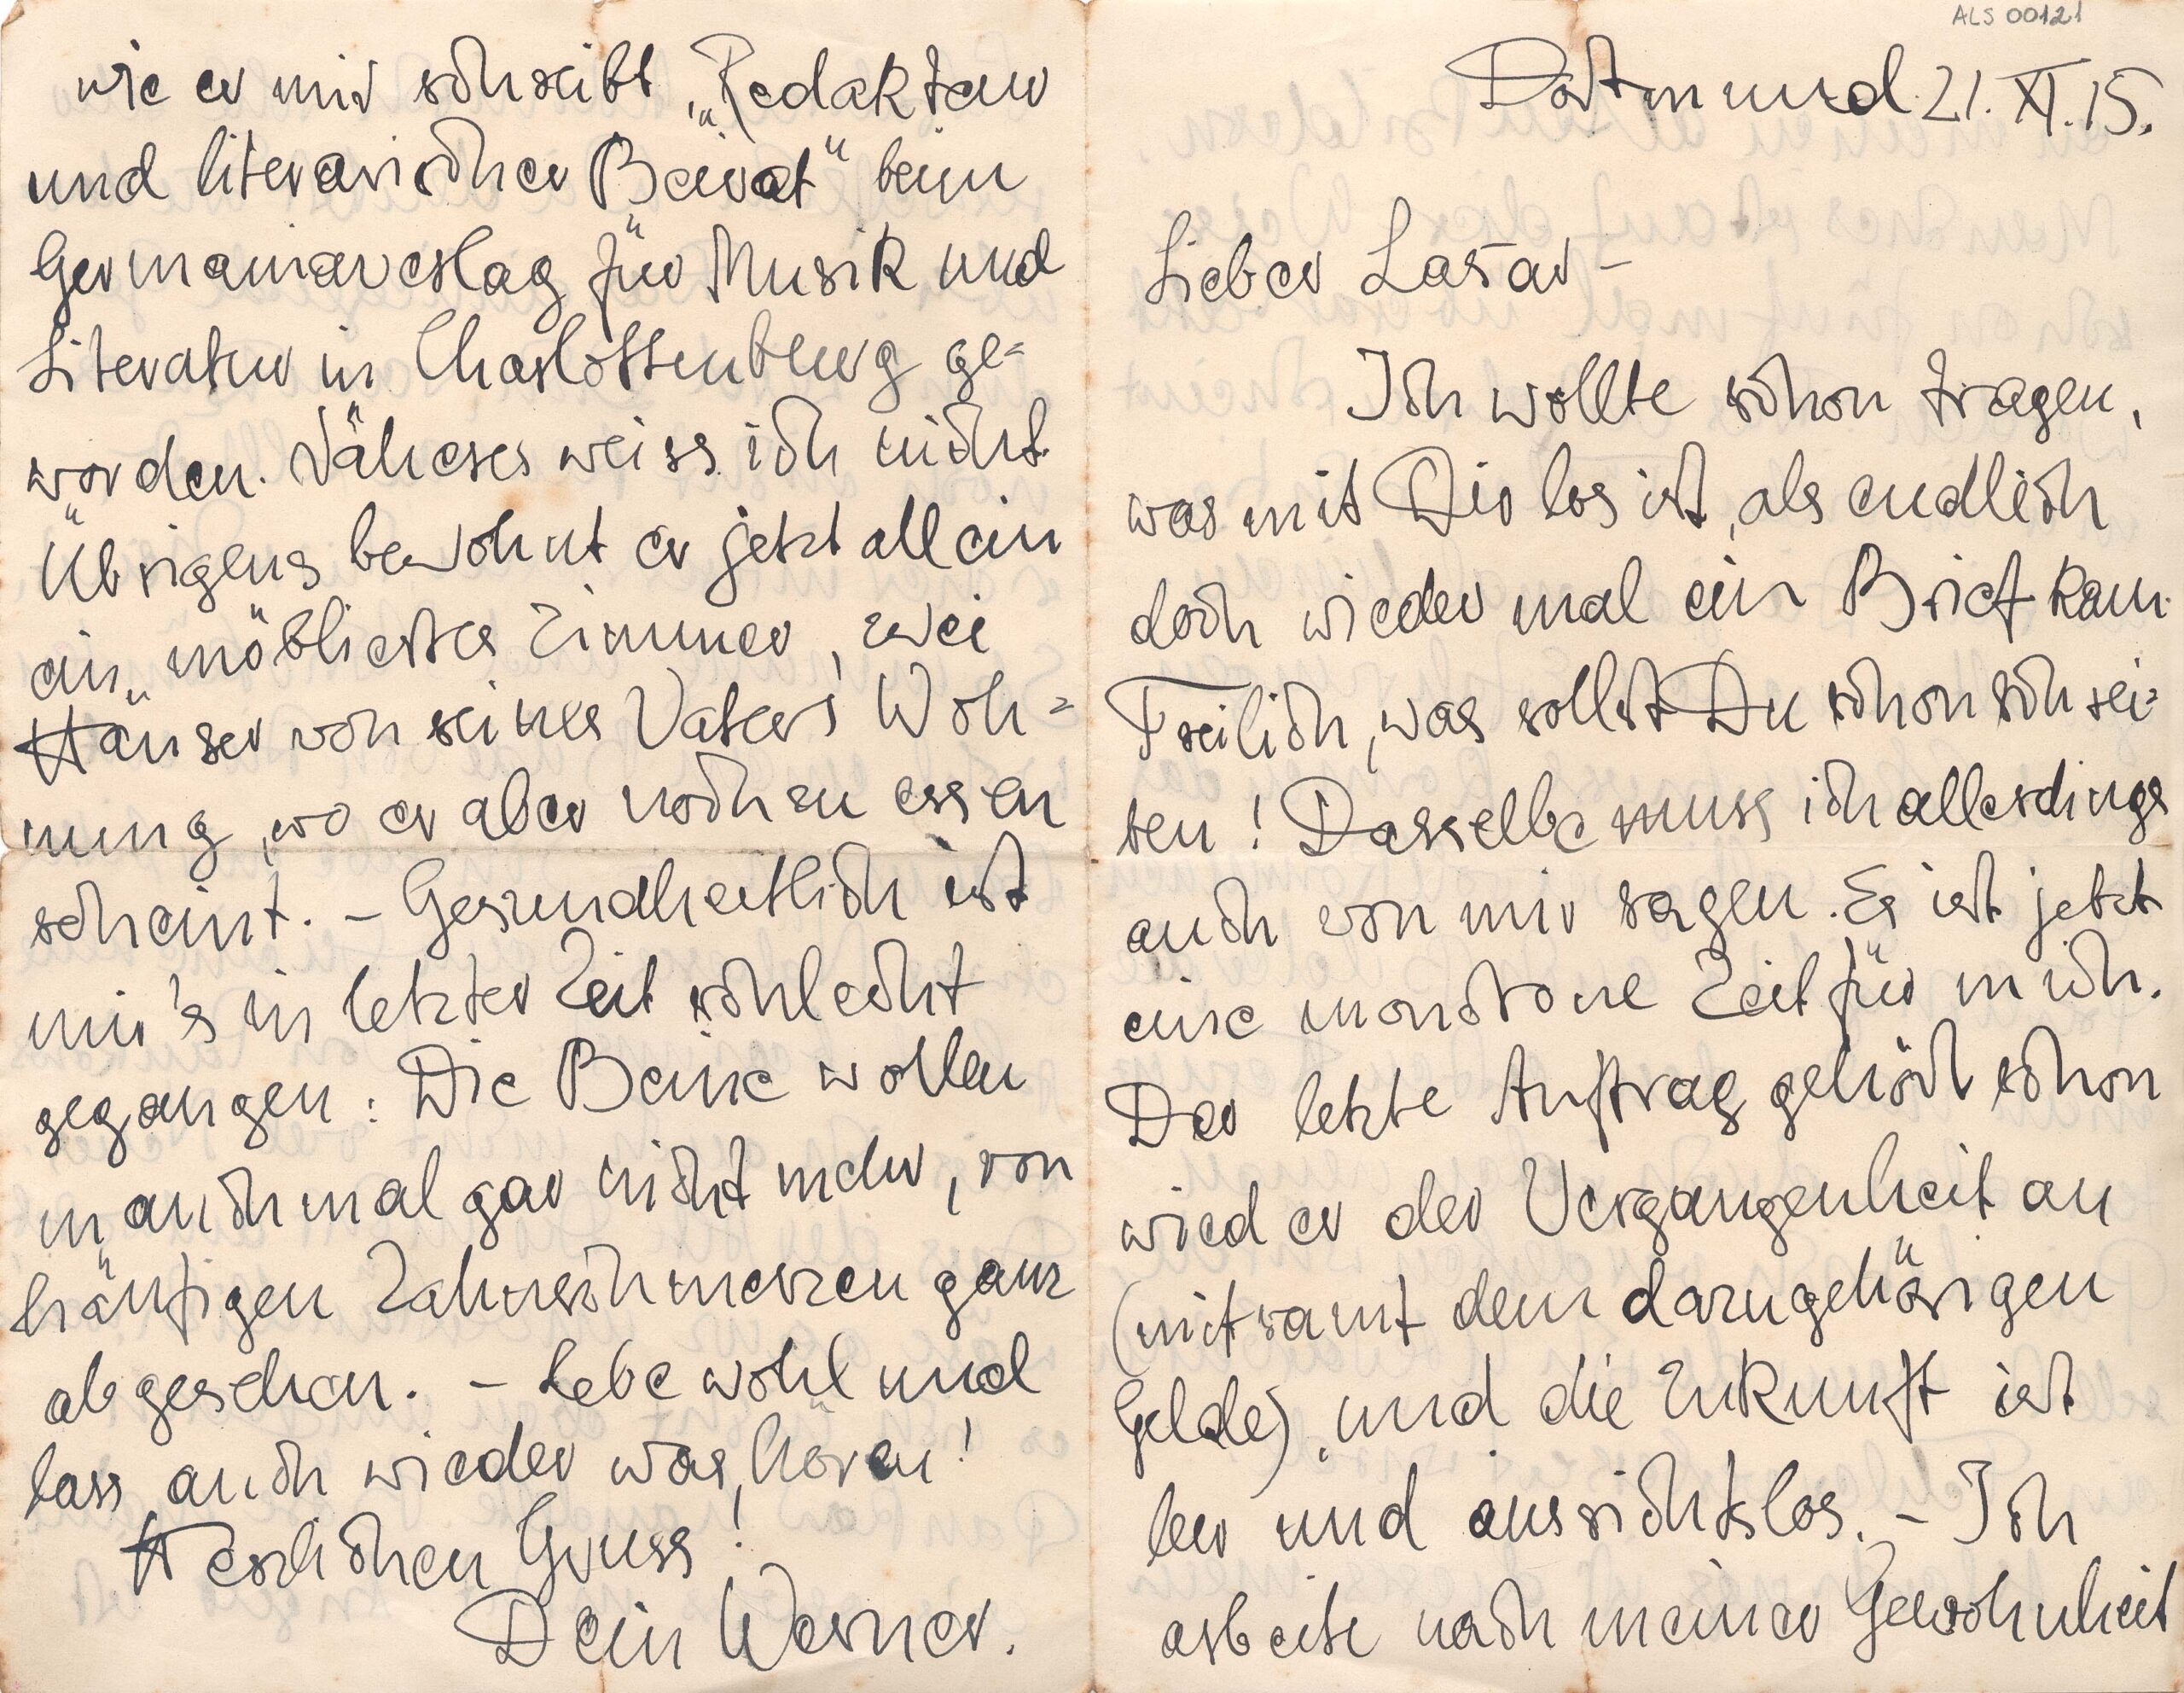 ALS 00121
Dortmund 21. XI. 15.
Lieber Lasar –
Ich wollte schon fragen,
was mit Dir los ist, als endlich
doch wieder mal ein Brief kam.
Freilich, was sollst Du schon schrei-
ben! Dasselbe muss ich allerdings
auch von mir sagen. Es ist jetzt
eine monotone Zeit für mich.
Der letzte Auftrag gehört schon
wieder der Vergangenheit an
(mitsamt dem dazugehörigen
Gelde), und die Zukunft ist
leer und aussichtslos. – Ich
arbeite nach meiner Gewohnheit
wie er mir schreibt, „Redakteur
und literarischer Beirat" beim
Germaniaverlag für Musik und
Literatur in Charlottenburg ge-
worden. Näheres weiss ich nicht.
Übrigens bewohnt er jetzt allein
ein möbliertes Zimmer, zwei
Häuser von seines Vaters' Woh-
nung, wo er aber noch zu essen
scheint. – Gesundheitlich ist
mir's in letzter Zeit schlecht
gegangen: Die Beine wollen
manchmal gar nicht mehr, von
häufigen Zahnschmerzen ganz
abgesehen. – Lebe wohl und
lass auch wieder was hören!
Herzlichen Gruss!
Dein Werner.